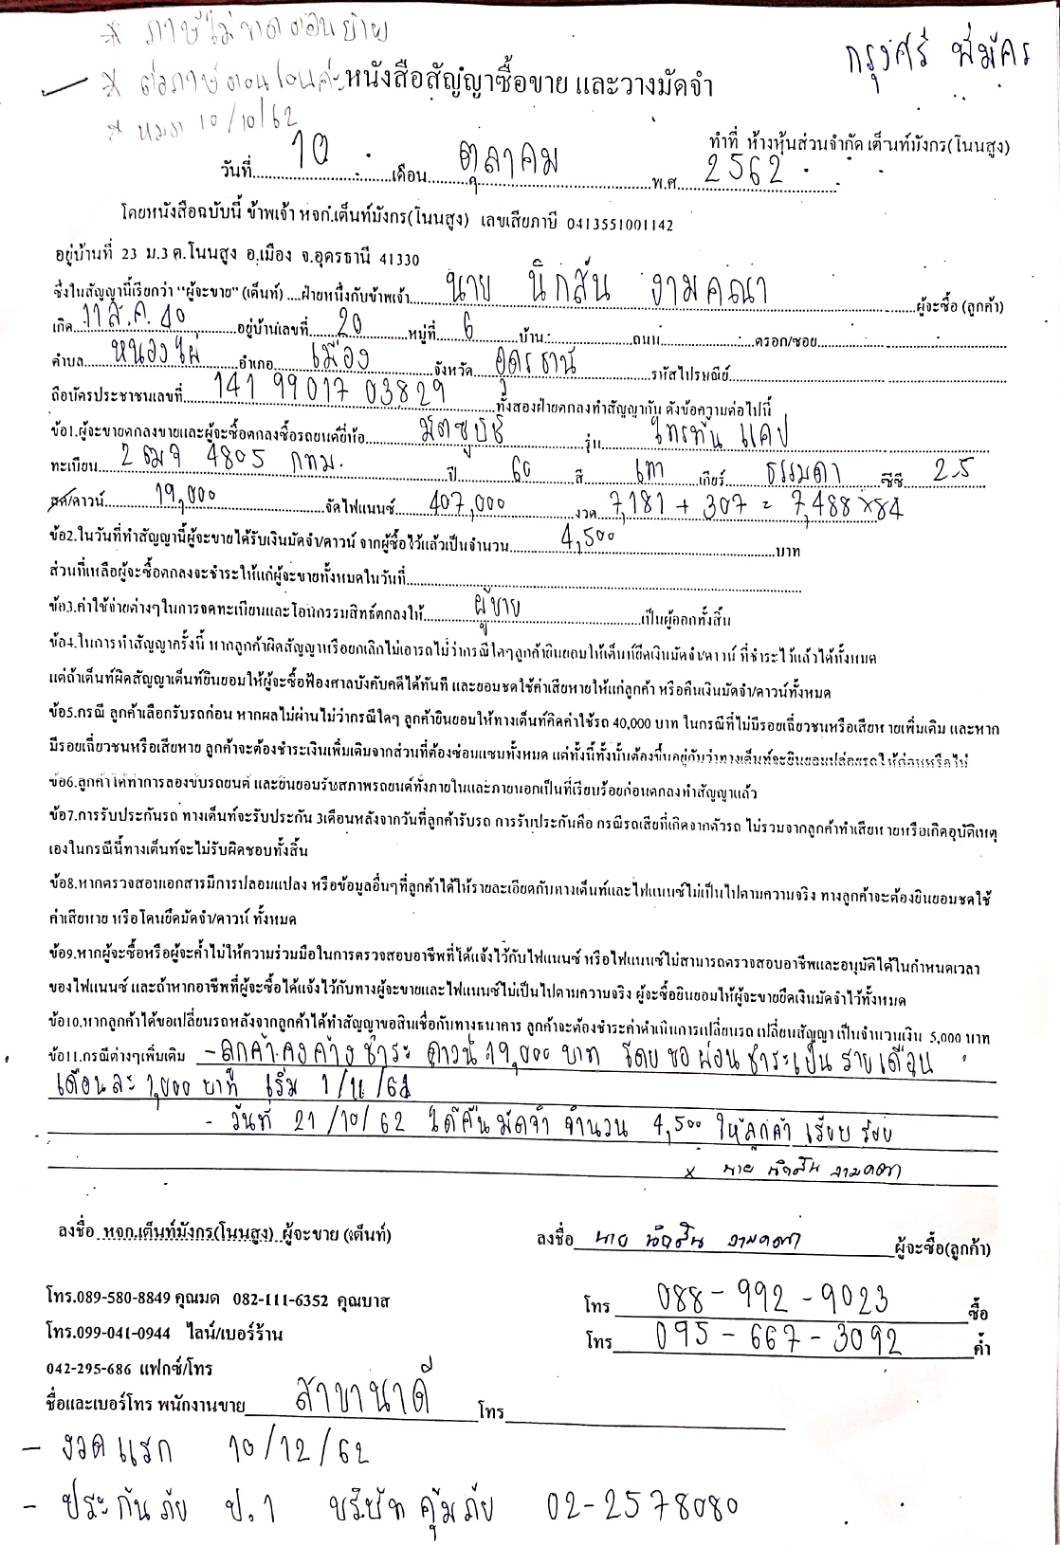 * ภาษีไม่ขาด
กรุงศรี พี่มัคร
* ต่อภาษีตอนโอนค่ะ
หนังสือสัญญาซื้อขาย และวางมัดจำ
* 10/10/62
ทำที่ ห้างหุ้นส่วนจำกัด เต็นท์มังกร(โนนสูง)
วันที่ 10 เดือน ตุลาคม พ.ศ. 2562
โดยหนังสือฉบับนี้ ข้าพเจ้า หจก.เต็นท์มังกร(โนนสูง) เลขเสียภาษี 0413551001142
อยู่บ้านที่ 23 ม.3 ต.โนนสูง อ.เมือง จ.อุดรธานี 41330
ซึ่งในสัญญานี้เรียกว่า "ผู้จะขาย" (เต็นท์) ....ฝ่ายหนึ่งกับข้าพเจ้า นาย นิกสัน งามคณา ผู้จะซื้อ (ลูกค้า)
เกิด 11 ส.ค. 40 อยู่บ้านเลขที่ 20 หมู่ที่ 6 บ้าน ถนน ตรอก/ซอย
ตำบล หนองไผ่ อำเภอ เมือง จังหวัด อุดรธานี รหัสไปรษณีย์
ถือบัตรประชาชนเลขที่ 141 99017 03829 ทั้งสองฝ่ายตกลงทำสัญญากัน ดังข้อความต่อไปนี้
ข้อ1.ผู้จะขายตกลงขายและผู้จะซื้อตกลงซื้อรถยนต์ยี่ห้อ มิตซูบิชิ รุ่น ไทรทัน แคป
ทะเบียน 2ฒจ 4805 กทม. ปี 60 สี เทา เกียร์ ธรรมดา ซีซี 2.5
สด/ดาวน์ 19,000 จัดไฟแนนซ์ 407,000 งวด 7,181 + 307 = 7,488 x 84
ข้อ2.ในวันที่ทำสัญญานี้ผู้จะขายได้รับเงินมัดจำ/ดาวน์ จากผู้ซื้อไว้แล้วเป็นจำนวน 4,500 บาท
ส่วนที่เหลือผู้จะซื้อตกลงจะชำระให้แก่ผู้จะขายทั้งหมดในวันที่
ข้อ3.ค่าใช้จ่ายต่างๆในการจดทะเบียนและโอนกรรมสิทธิ์ตกลงให้ ผู้ขาย เป็นผู้ออกทั้งสิ้น
ข้อ4.ในการทำสัญญาครั้งนี้ หากลูกค้าผิดสัญญาหรือยกเลิกไม่เอารถไม่ว่ากรณีใดๆลูกค้ายินยอมให้เต็นท์ยึดเงินมัดจำ/ดาวน์ ที่ชำระไว้แล้วได้ทั้งหมด
แต่ถ้าเต็นท์ผิดสัญญาเต็นท์ยินยอมให้ผู้จะซื้อฟ้องศาลบังคับคดีได้ทันที และยอมชดใช้ค่าเสียหายให้แก่ลูกค้า หรือคืนเงินมัดจำ/ดาวน์ทั้งหมด
ข้อ5.กรณี ลูกค้าเลือกรับรถก่อน หากผลไม่ผ่านไม่ว่ากรณีใดๆ ลูกค้ายินยอมให้ทางเต็นท์คิดค่าใช้รถ 40,000 บาท ในกรณีที่ไม่มีรอยเฉี่ยวชนหรือเสียหายเพิ่มเติม และหาก
มีรอยเฉี่ยวชนหรือเสียหาย ลูกค้าจะต้องชำระเงินเพิ่มเติมจากส่วนที่ต้องซ่อมแซมทั้งหมด แต่ทั้งนี้ทั้งนั้นต้องขึ้นอยู่กับว่าทางเต็นท์จะยินยอมปล่อยรถให้ก่อนหรือไม่
ข้อ6.ลูกค้าได้ทำการลองขับรถยนต์ และยินยอมรับสภาพรถยนต์ทั้งภายในและภายนอกเป็นที่เรียบร้อยก่อนตกลงทำสัญญาแล้ว
ข้อ7.การรับประกันรถ ทางเต็นท์จะรับประกัน 3เดือนหลังจากวันที่ลูกค้ารับรถ การรับประกันคือ กรณีรถเสียที่เกิดจากตัวรถ ไม่รวมจากลูกค้าทำเสียหายหรือเกิดอุบัติเหตุ
เองในกรณีนี้ทางเต็นท์จะไม่รับผิดชอบทั้งสิ้น
ข้อ8.หากตรวจสอบเอกสารมีการปลอมแปลง หรือข้อมูลอื่นๆที่ลูกค้าได้ให้รายละเอียดกับทางเต็นท์และไฟแนนซ์ไม่เป็นไปตามความจริง ทางลูกค้าจะต้องยินยอมชดใช้
ค่าเสียหาย หรือโดนยึดมัดจำ/ดาวน์ ทั้งหมด
ข้อ9.หากผู้จะซื้อหรือผู้จะค้ำไม่ให้ความร่วมมือในการตรวจสอบอาชีพที่ได้แจ้งไว้กับไฟแนนซ์ หรือไฟแนนซ์ไม่สามารถตรวจสอบอาชีพและอนุมัติได้ในกำหนดเวลา
ของไฟแนนซ์ และถ้าหากอาชีพที่ผู้จะซื้อได้แจ้งไว้กับทางผู้จะขายและไฟแนนซ์ไม่เป็นไปตามความจริง ผู้จะซื้อยินยอมให้ผู้จะขายยึดเงินมัดจำไว้ทั้งหมด
ข้อ10.หากลูกค้าได้ขอเปลี่ยนรถหลังจากลูกค้าได้ทำสัญญาขอสินเชื่อกับทางธนาคาร ลูกค้าจะต้องชำระค่าดำเนินการเปลี่ยนรถ เปลี่ยนสัญญา เป็นจำนวนเงิน 5,000 บาท
ข้อ11.กรณีต่างๆเพิ่มเติม - ลูกค้า คงค้าง ชำระ ดาวน์ 19,000 บาท โดยขอผ่อนชำระเป็น รายเดือน
เดือนละ 1,000 บาท เริ่ม 1/11/62
- วันที่ 21/10/62 ได้คืนมัดจำ จำนวน 4,500 ให้ลูกค้า เรียบร้อย
x นาย นิกสัน งามคณา
ลงชื่อ หจก.เต็นท์มังกร(โนนสูง) ผู้จะขาย (เต็นท์)
ลงชื่อ นาย นิกสัน งามคณา ผู้จะซื้อ(ลูกค้า)
โทร.089-580-8849 คุณมด 082-111-6352 คุณบาส
โทร 088-992-9023 ซื้อ
โทร.099-041-0944 ไลน์/เบอร์ร้าน
โทร 095-667-3092 ค้ำ
042-295-686 แฟกซ์/โทร
ชื่อและเบอร์โทร พนักงานขาย สาขานาดี โทร
- งวดแรก 10/12/62
- ประกันภัย ป.1 บริษัท คุ้มภัย 02-2578080